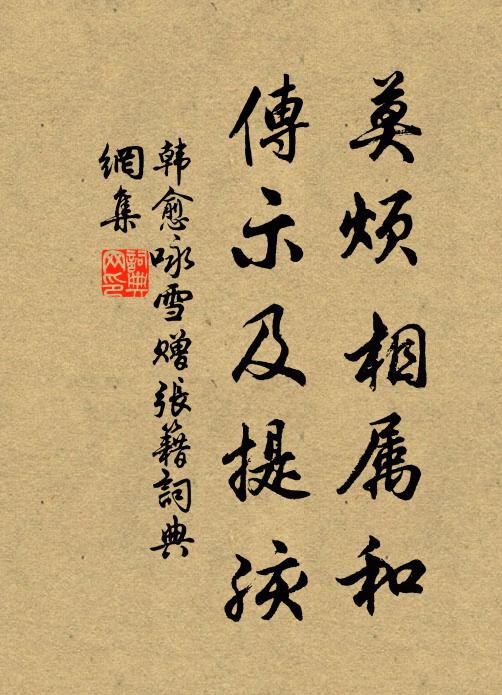 莫烦相属和
傳示及提孩
韩愈咏雪赠張籍詞典
網集
詞典
网印